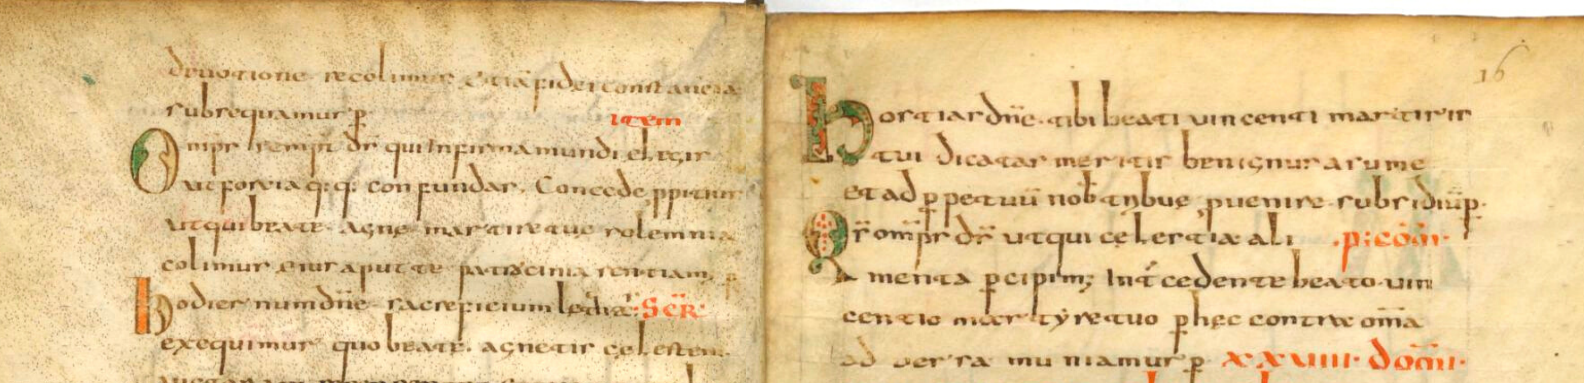 deuotione recolimus etiā fidei constantia
subsequamur p̄
item
Omps sempit̄ ds̄ qui infirma mundi eligis
ut fortia q;q; confundas. Concede ppitius
ut qui beate agne martire tue solemnia
colimus eius aput te patrocinia sentiam;
hodiernum dn̄e sacreficium letitiæ scr̄
exequimur quo beate agnetis celestem
16
Hostias dn̄e tibi beati vincenti martiris
tui dicatas meritis benignus asume
et ad p̱petuū nob̄ tribue puenire subsidiū p̱
Qs̄ omps ds̄ ut qui celestia ali p; cōm
menta p̱cipim; Int̄cedente beato vin
centio martyre tuo p̱ hec contra om̄ia
aduersa muniamur p̱ xxviiii dom̄